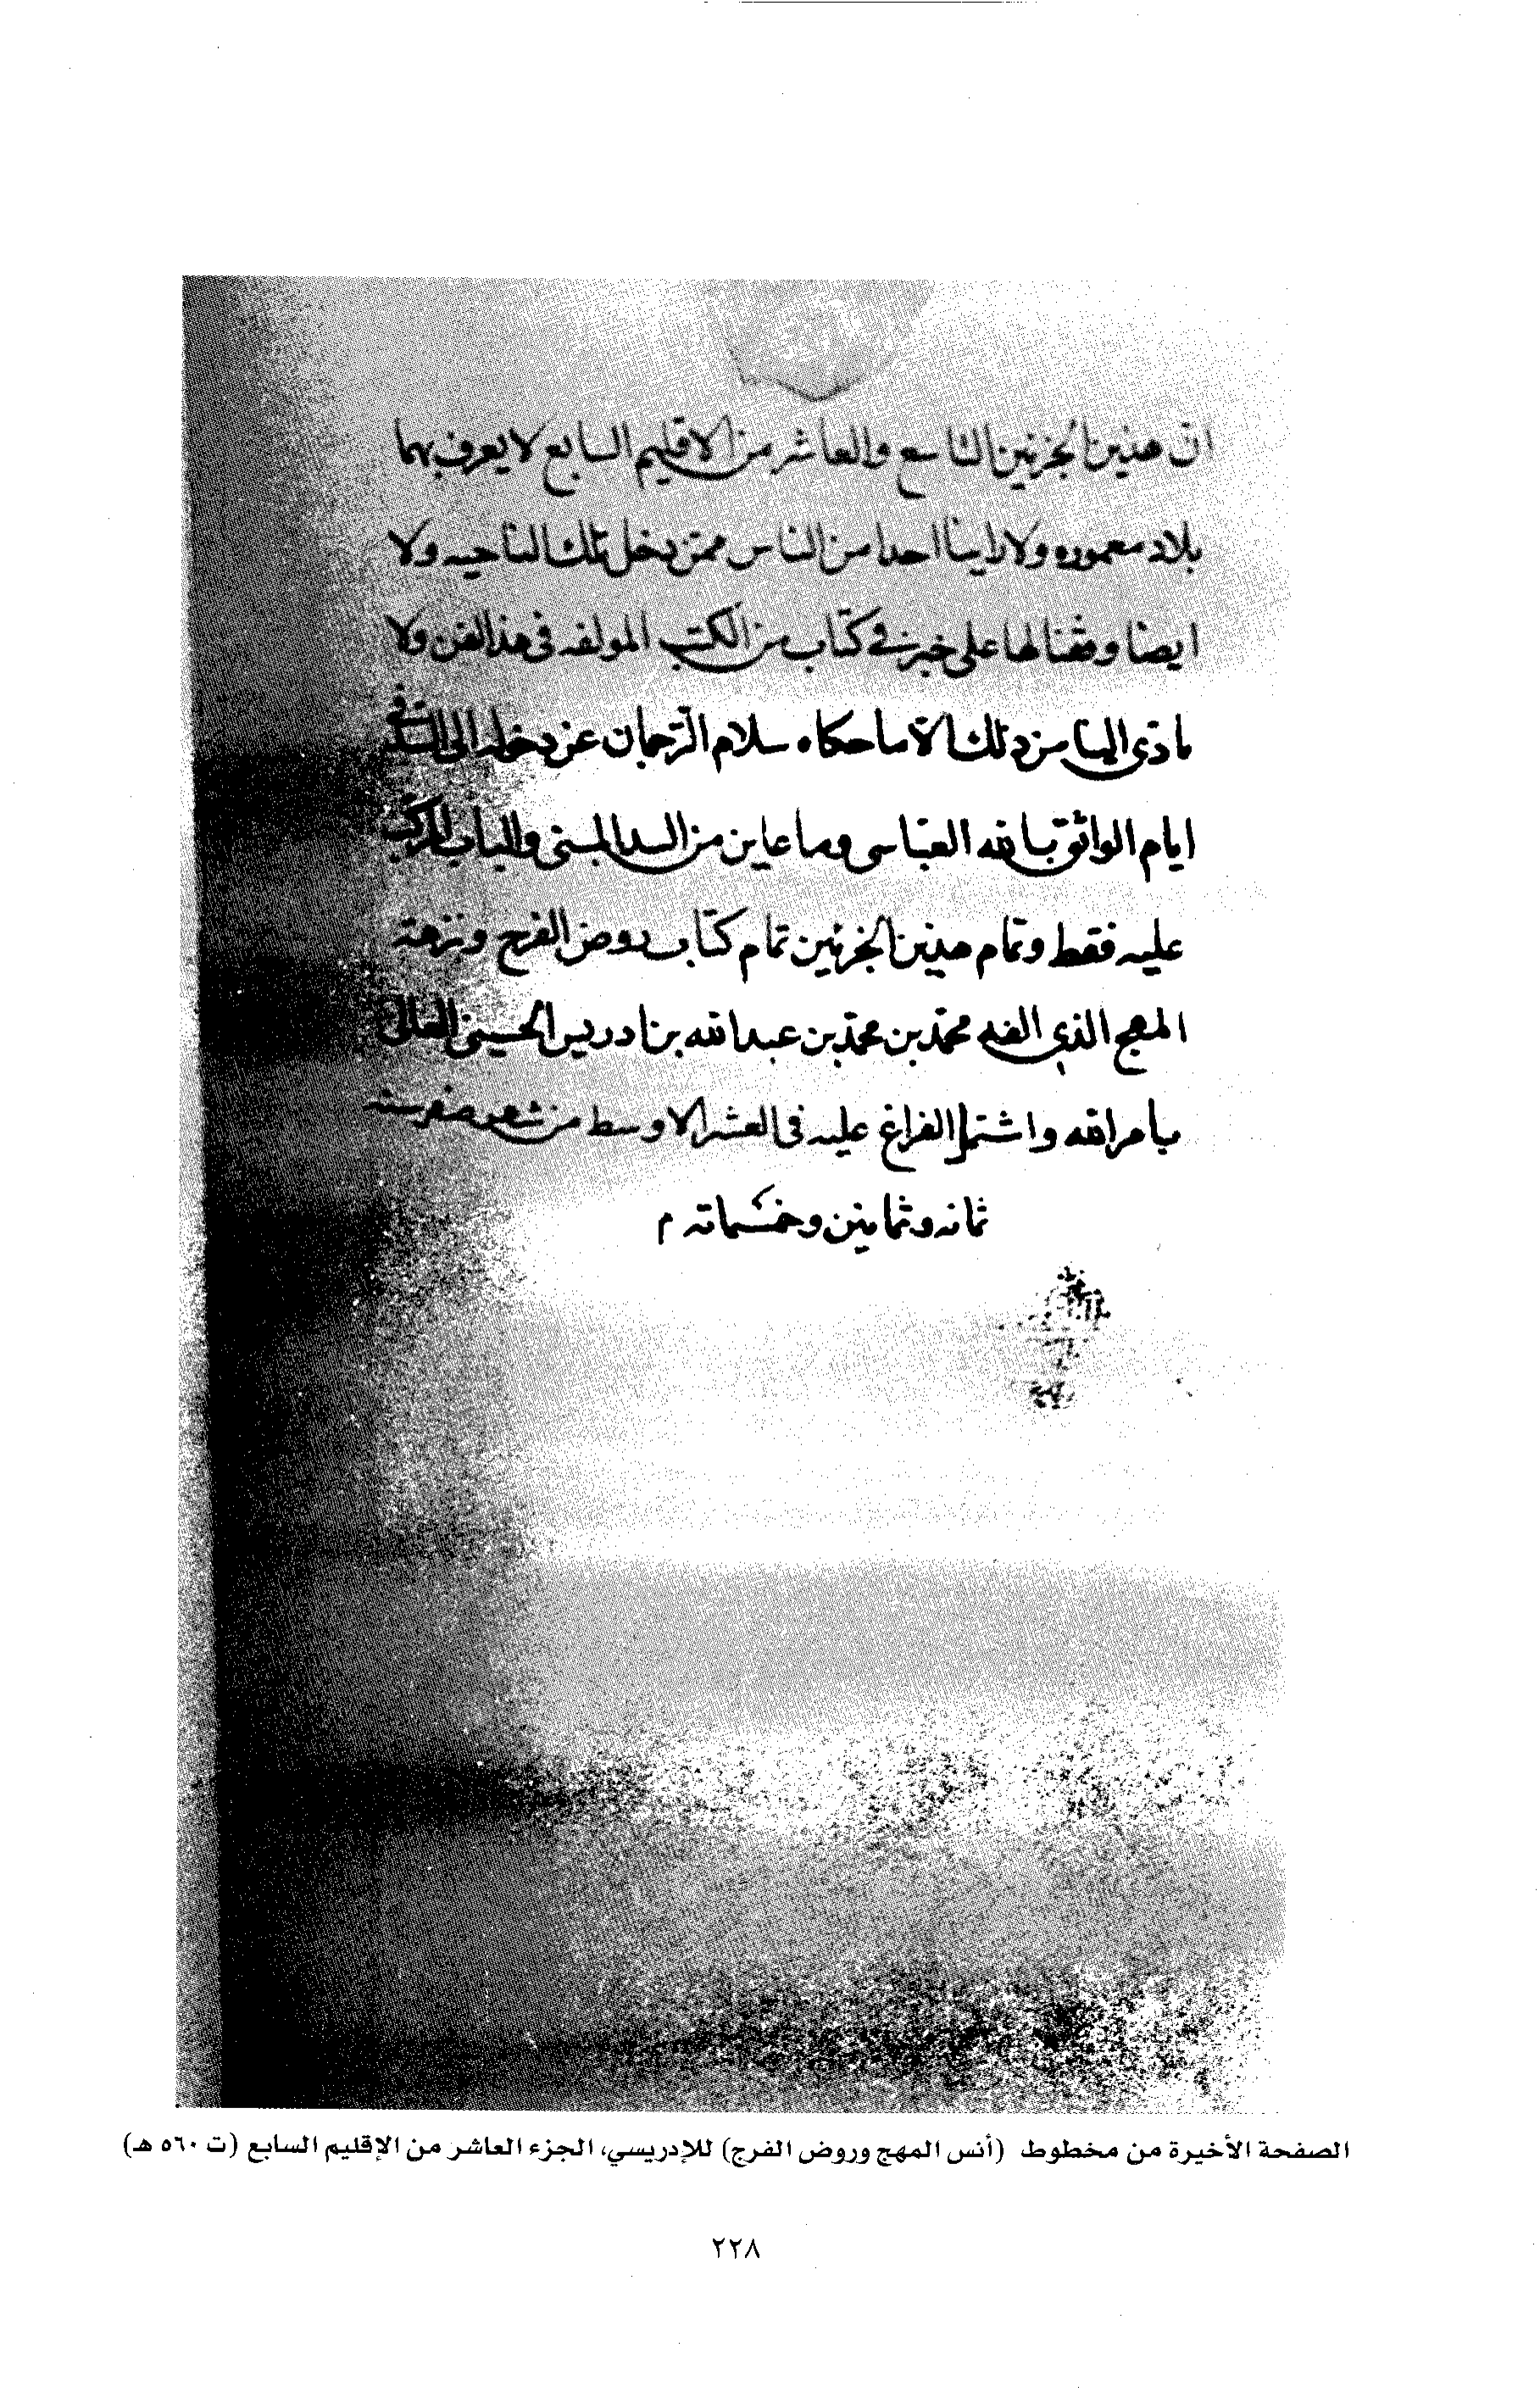 ان هذين الجزئين التاسع والعاشر من الاقليم السابع لا يعرف بهما
بلاد معموره ولا راينا احدا من الناس ممن يدخل تلك الناحيه ولا
ايضا وقفنا لها على خبر في كتاب من الكتب المولفه في هذا الفن ولا
ماذى الينا من ذلك الا ما حكاه سلام الترجمان عن دخله الى السد في
ايام الواثق بالله العباسى وما عاين من السد المبنى والباب المركب
عليه فقط وتمام هذين الجزئين تمام كتاب روض الفرج ونزهة
المهج الذى الفه محمد بن محمد بن عبد الله بن ادريس الحسينى العالى
بامر الله واشتمل الفراغ عليه فى العشر الاوسط من شهر صفر سنه
ثمانه وثمانين وخمسمائه م
الصفحة الأخيرة من مخطوط (أنس المهج وروض الفرج) للإدريسي، الجزء العاشر من الإقليم السابع (ت ٥٦٠ هـ)
٢٢٨